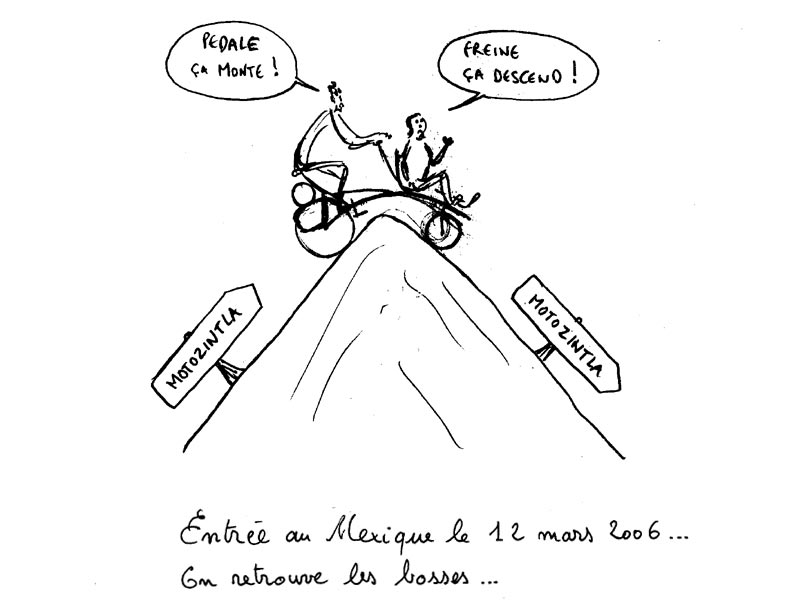 PEDALE
ÇA MONTE !
FREINE
ÇA DESCEND !
MOTOZINTLA
MOTOZINTLA
Entrée au Mexique le 12 mars 2006...
On retrouve les bosses...